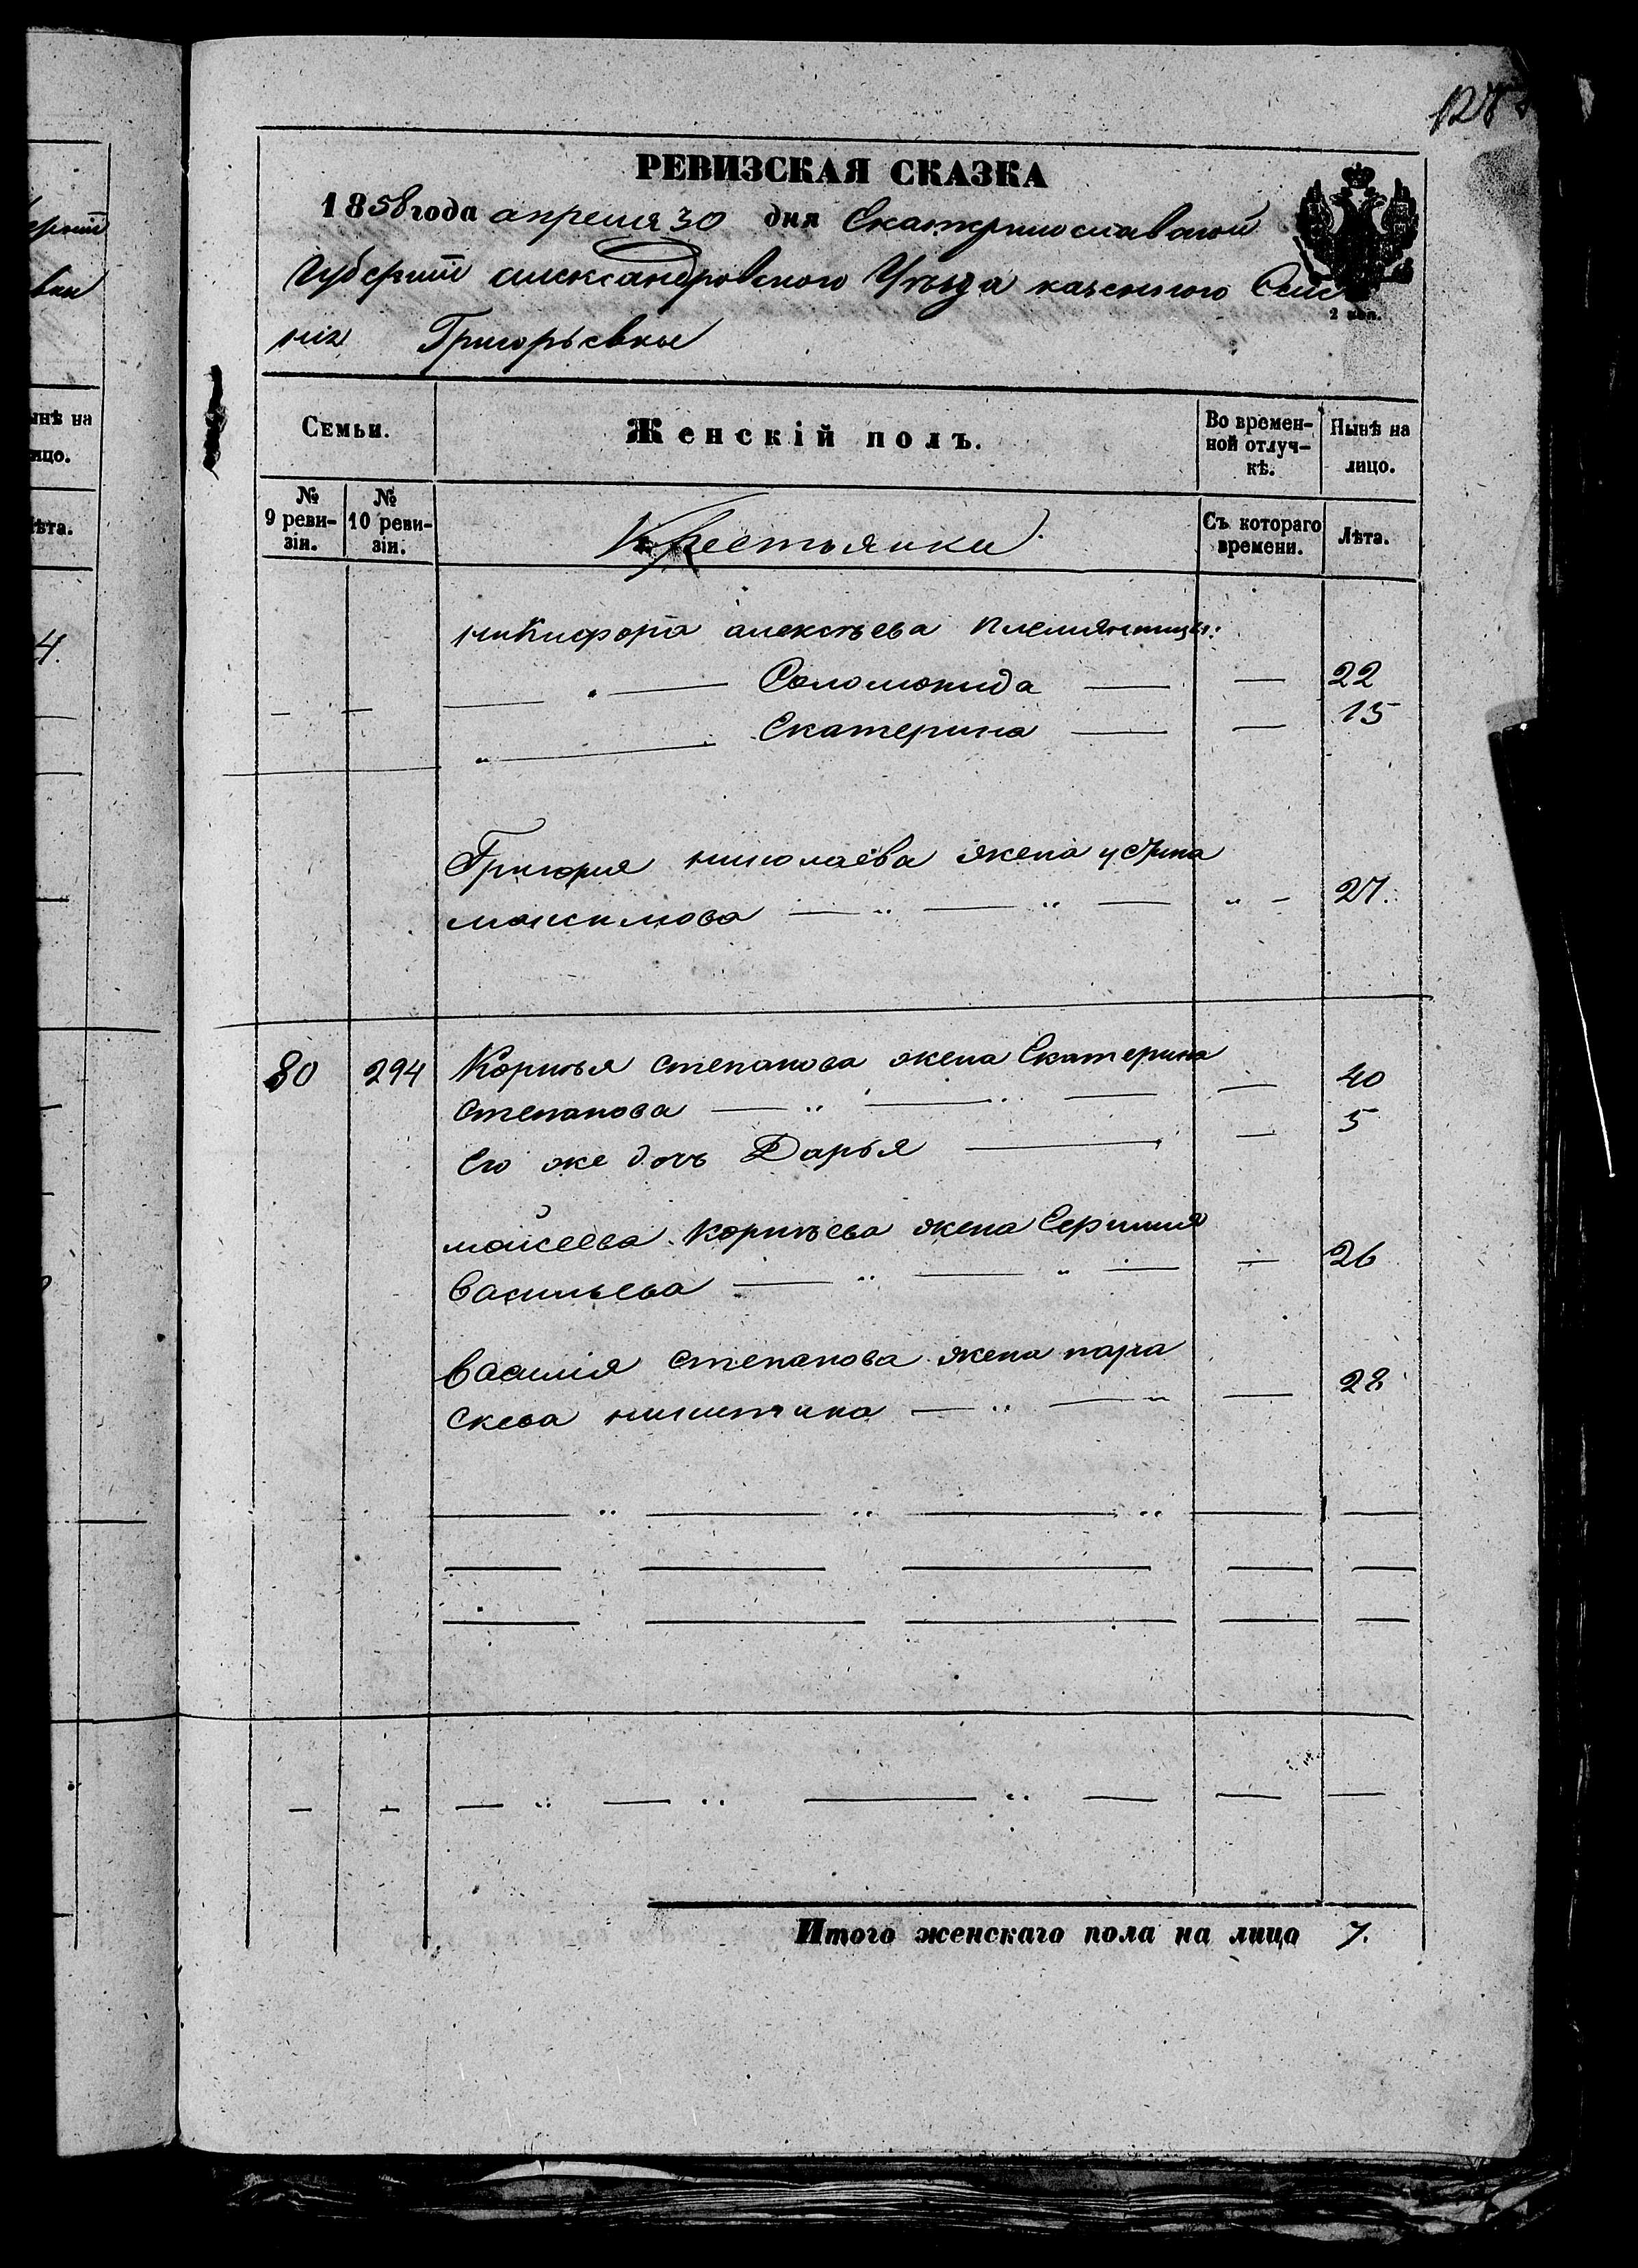 РЕВИЗСКАЯ СКАЗКА
1858 года апреля 30 дня Екатеринославской
Губернии александровского Уѣзда казенного Селе
нія Григорьевки
2 коп.
Семьи.
Женскій полъ.
Во времен-
ной отлуч-
кѣ.
Нынѣ на
лицо.
№
9 реви-
зіи.
№
10 реви-
зіи.
Крестьянки
Съ котораго
времени.
Лѣта.
никифора алексѣева племянницы:
Соломонида — — 22
Екатерина — — 15
Григория николаева жена устина
максимова — „ — „ — „ - 27.
80 294 Корнѣя степанова жена Екатерина
степанова — „ — „ — — 40
его же дочь Дарья — — 5
мойсеева Корнѣева жена
васильева — „ — „ — — 26
василія степанова жена пара
скева никитина — „ — „ — 28
Итого женскаго пола на лицо 7.